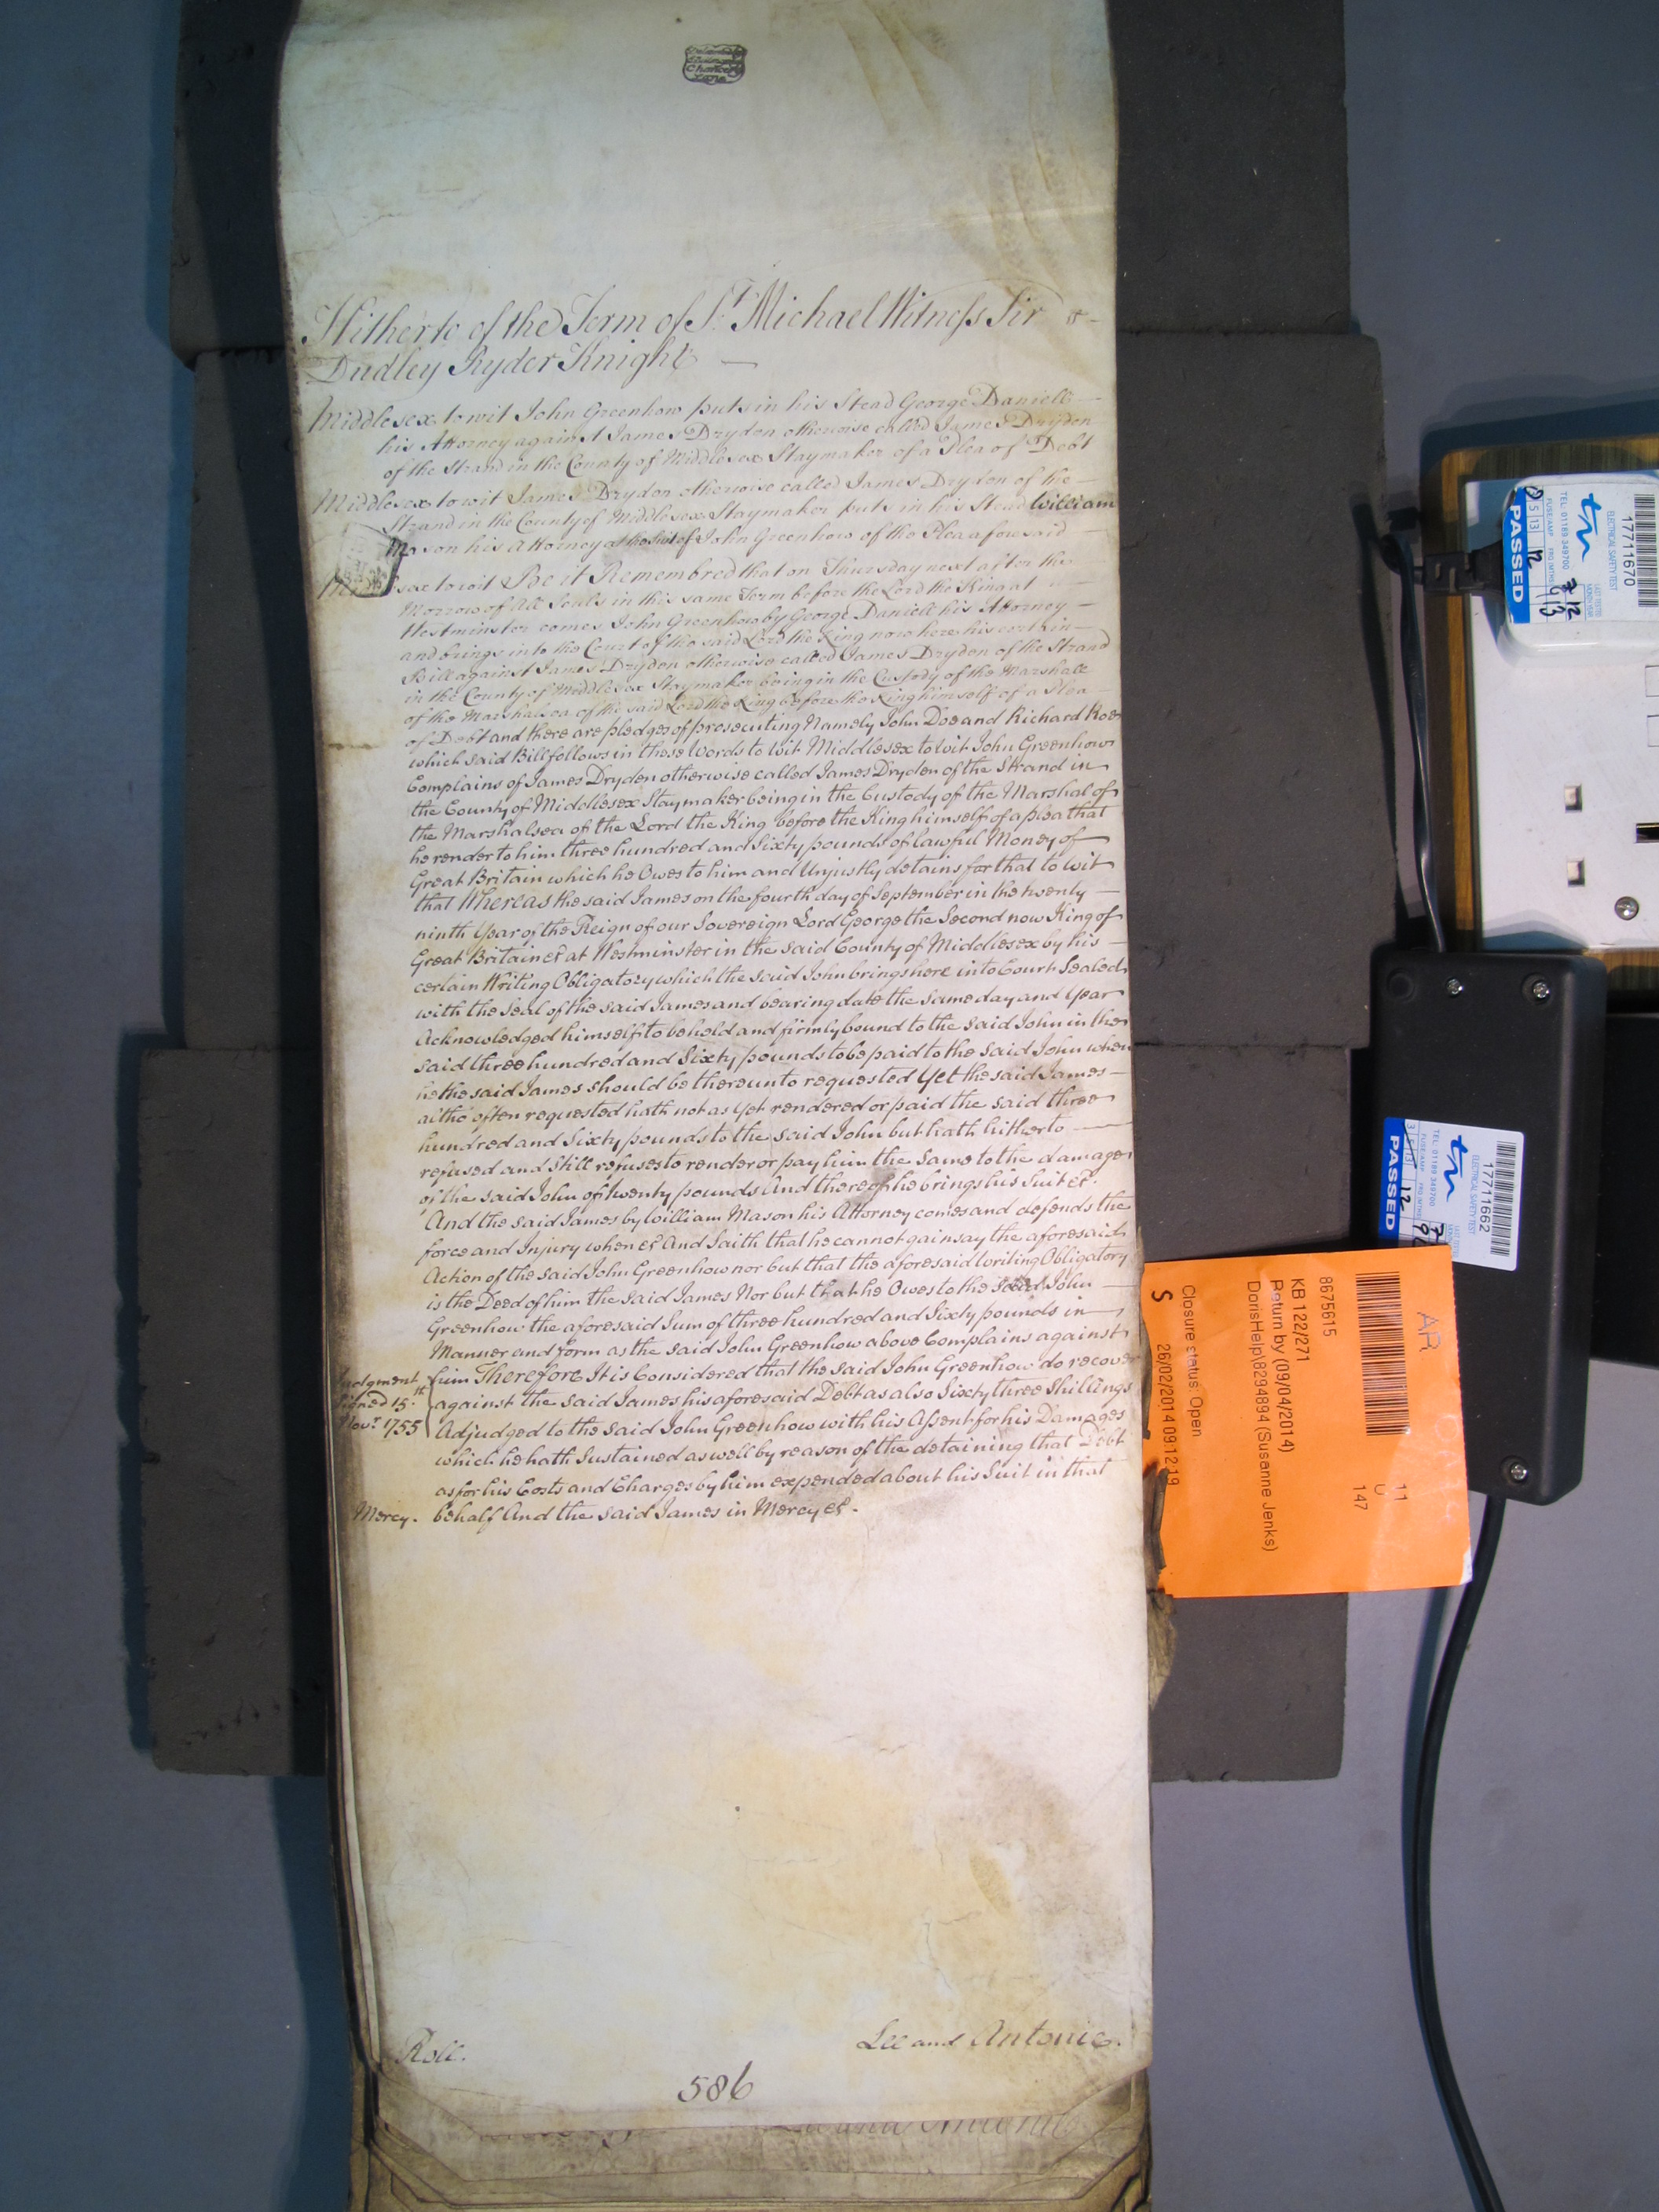 Hitherto of the Term of St. Michael Witness Sir &
Dudley Ryder Knight
Middlesex to wit John Greenhow puts in his Stead George Daniell
his Attorney against James Dryden otherwise called James Dryden
of the Strand in the County of Middlesex Staymaker of a Plea of Debt
Middlesex to wit James Dryden otherwise called James Dryden of the
Strand in the County of Middlesex Staymaker puts in his Stead William
Mason his Attorney at the Suit of John Greenhow of the Plea aforesaid
Middlesex to wit Be it Remembred that on Thursday next after the
Morrow of All Souls in this same Term before the Lord the King at
Westminster comes John Greenhow by George Daniell his Attorney
and brings into the Court of the said Lord the King now here his certain
Bill against James Dryden otherwise called James Dryden of the Strand
in the County of Middlesex Staymaker being in the Custody of the Marshall
of the Marshalsea of the said Lord the King before the King himself of a Plea
of Debt and there are pledges of prosecuting Namely John Doe and Richard Roe
which said Bill follows in these Words to Wit Middlesex to Wit John Greenhow
Complains of James Dryden otherwise called James Dryden of the Strand in
the County of Middlesex Staymaker being in the Custody of the Marshal of
the Marshalsea of the Lord the King before the King himself of a plea that
he render to him three hundred and Sixty pounds of lawful Money of
Great Britain which he Owes to him and Unjustly detains for that to Wit
that Whereas the said James on the fourth day of September in the twenty
ninth Year of the Reign of our Sovereign Lord George the Second now King of
Great Britain &c at Westminster in the said County of Middlesex by his
certain Writing Obligatory which the said John brings here into Court Sealed
with the Seal of the said James and bearing date the same day and Year
Acknowledged himself to be held and firmly bound to the said John in the
said three hundred and Sixty pounds to be paid to the said John when
he the said James should be thereunto requested Yet the said James
altho' often requested hath not as Yet rendered or paid the said three
hundred and Sixty pounds to the said John but hath hitherto
refused and Still refuses to render or pay him the Same to the damage
of the said John of twenty pounds And thereof he brings his Suit &c.
And the said James by William Mason his Attorney comes and defends the
force and Injury when &c And Saith that he cannot gainsay the aforesaid
Action of the said John Greenhow nor but that the aforesaid Writing Obligatory
is the Deed of him the said James Nor but that he Owes to the said John
Greenhow the aforesaid Sum of three hundred and Sixty pounds in
Manner and form as the said John Greenhow above Complains against
him Therefore It is Considered that the said John Greenhow do recover
Judgment
signed 15.th
Nov.r 1755
against the said James his aforesaid Debt as also Sixty three Shillings
Adjudged to the said John Greenhow with his Assent for his Damages
which he hath Sustained as well by reason of the detaining that Debt
as for his Costs and Charges by him expended about his Suit in that
Mercy. behalf And the said James in Mercy &c.
Roll.
Lee and Antonie.
586
AR
11
U
147
8675615
KB 122/271
Return by (09/04/2014)
DorisHelp\8294894 (Susanne Jenks)
Closure status: Open
S
26/02/2014 09:12:19
17711670
ELECTRICAL SAFETY TEST
TEL: 01189 349700
PASSED
17711662
ELECTRICAL SAFETY TEST
TEL: 01189 349700
PASSED